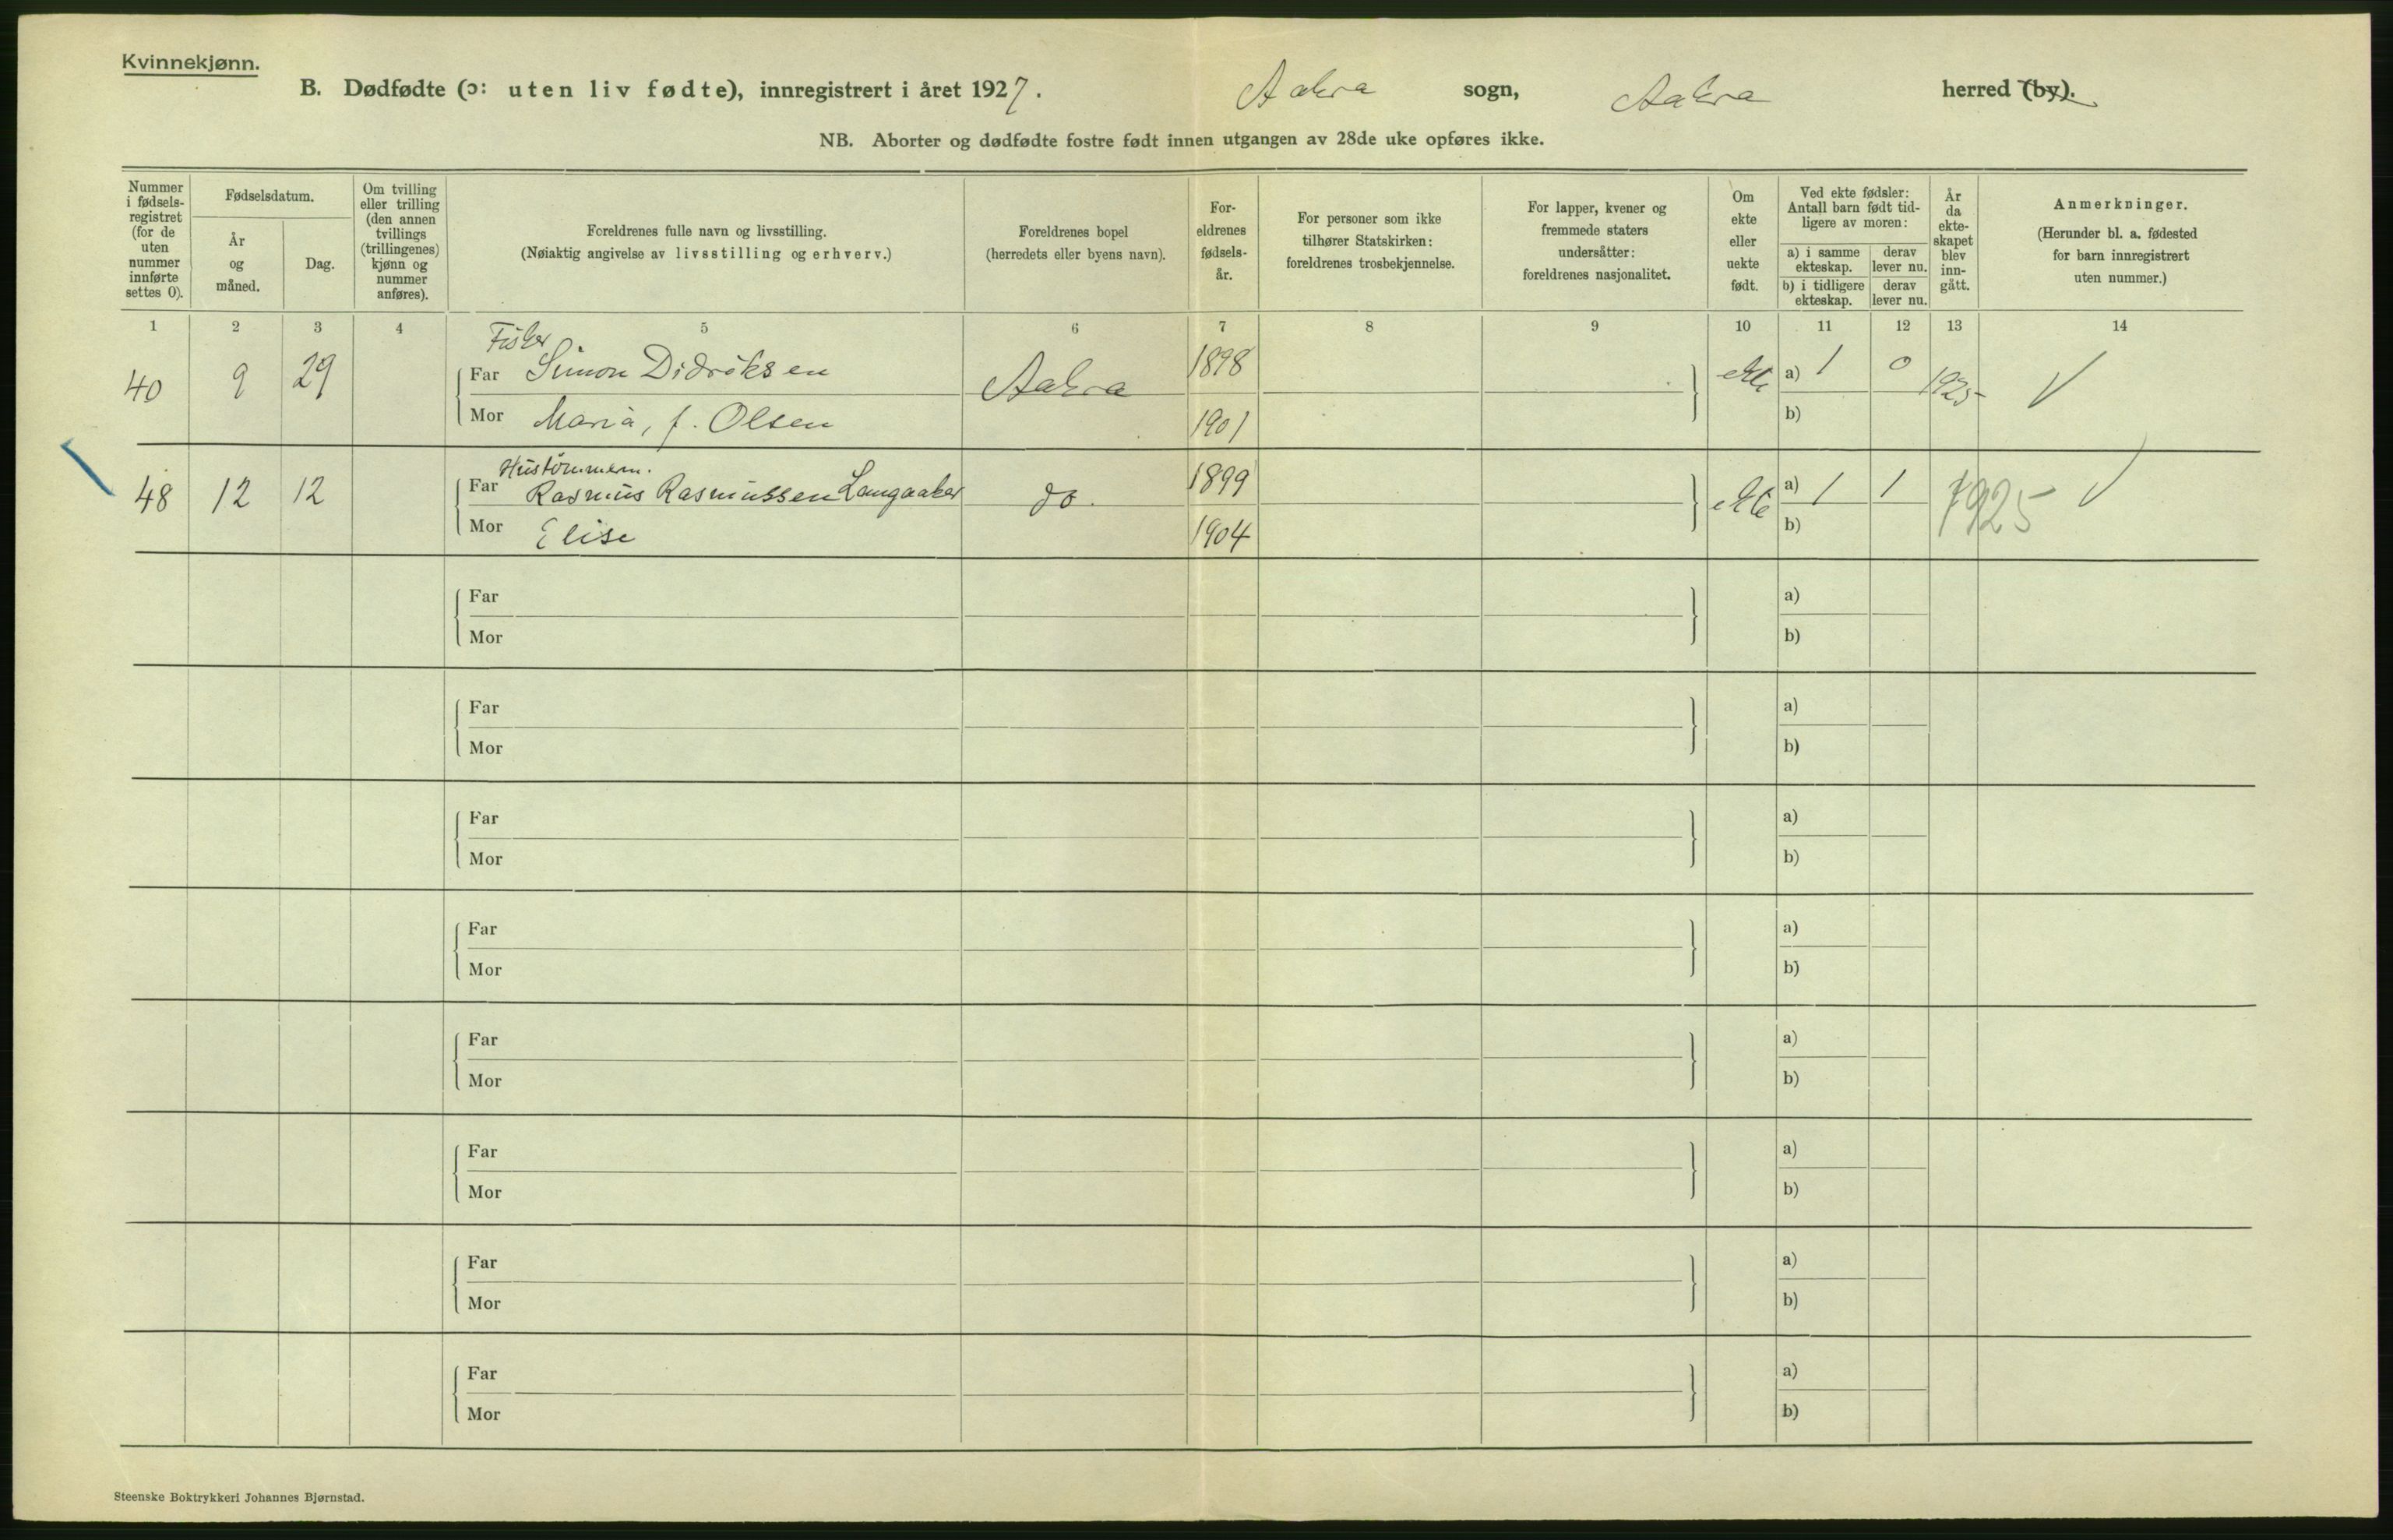 Kvinnekjønn.
B. Dødfødte (ɔ: uten liv fødte), innregistrert i året 1927. Aakra sogn, Aakra herred (by).
NB. Aborter og dødfødte fostre født innen utgangen av 28de uke opføres ikke.
Nummer i fødsels-registret (for de uten nummer innførte settes 0).
Fødselsdatum.
År og måned.
Dag.
Om tvilling eller trilling (den annen tvillings (trillingenes) kjønn og nummer anføres).
Foreldrenes fulle navn og livsstilling.
(Nøiaktig angivelse av livsstilling og erhverv.)
Foreldrenes bopel
(herredets eller byens navn).
For-eldrenes fødsels-år.
For personer som ikke tilhører Statskirken: foreldrenes trosbekjennelse.
For lapper, kvener og fremmede staters undersåtter: foreldrenes nasjonalitet.
Om ekte eller uekte født.
Ved ekte fødsler: Antall barn født tid-ligere av moren:
a) i samme ekteskap. derav lever nu.
b) i tidligere ekteskap. derav lever nu.
År da ekte-skapet blev inn-gått.
Anmerkninger.
(Herunder bl. a. fødested for barn innregistrert uten nummer.)
1 2 3 4 5 6 7 8 9 10 11 12 13 14
Fisker
40 9 29 Far Simon Didriksen Aakra 1898 ekte a) 1 0 1925
Mor Maria, f. Olsen 1901 b)
Hustømmerm.
48 12 12 Far Rasmus Rasmussen Langaaker do. 1899 ekte a) 1 1 1925
Mor Elise 1904 b)
Far a)
Mor b)
Far a)
Mor b)
Far a)
Mor b)
Far a)
Mor b)
Far a)
Mor b)
Far a)
Mor b)
Far a)
Mor b)
Far a)
Mor b)
Steenske Boktrykkeri Johannes Bjørnstad.